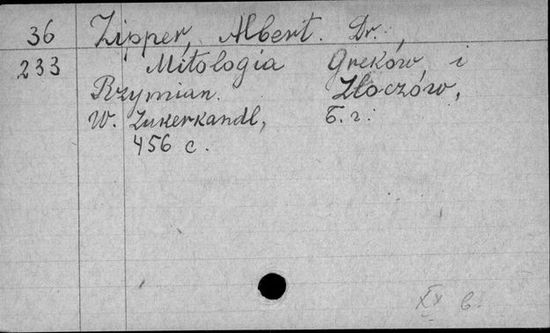 36 Zipper, Albert. Dr.
233 Mitologia Greków i
Rzymian. Złoczów,
W. Zukerkandl, Б. г.
456 с.
XX в.